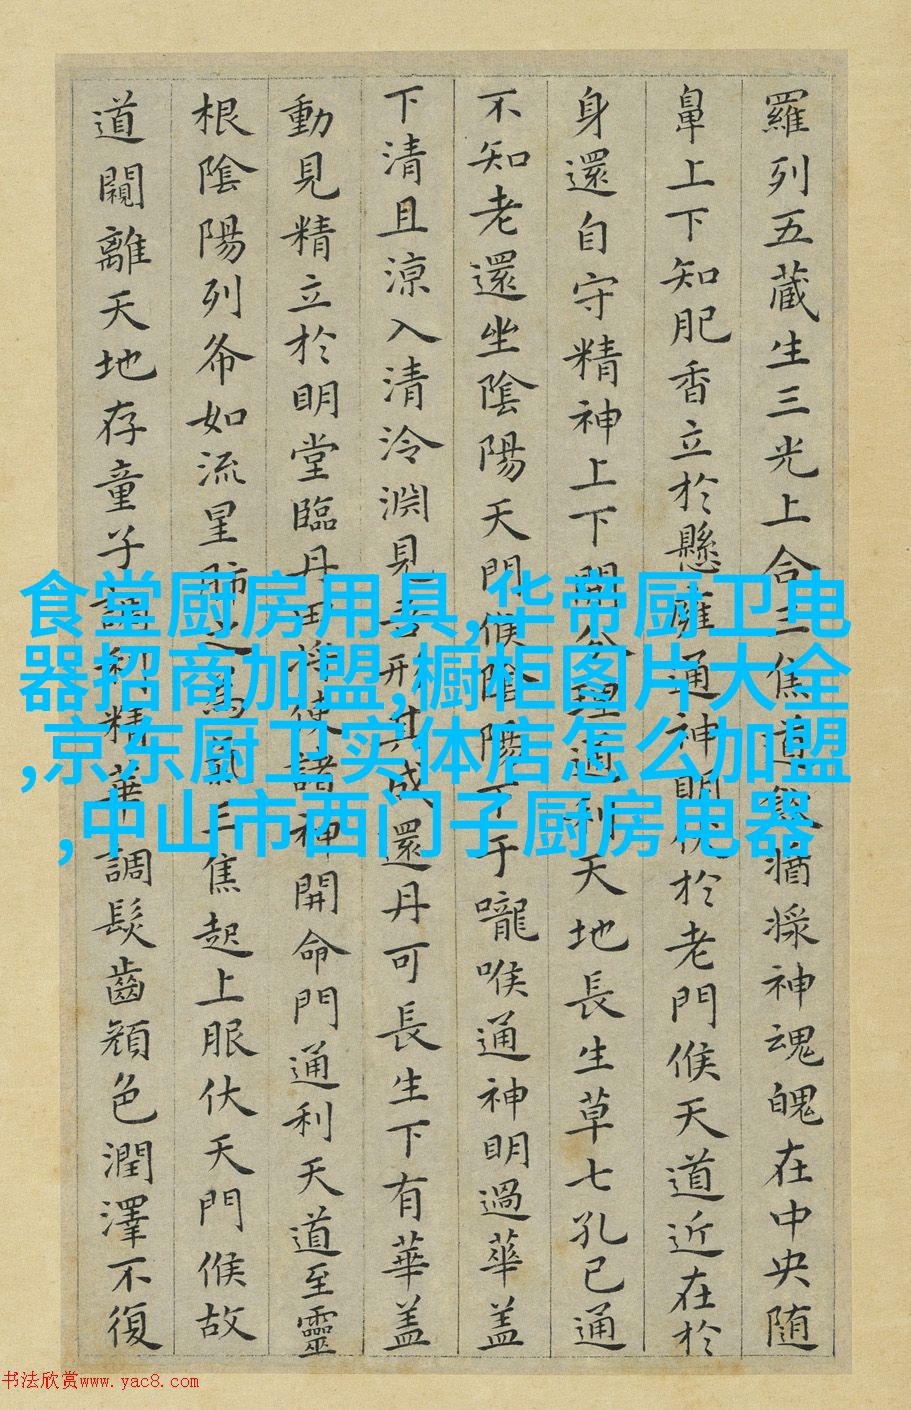 羅列五藏生三光上合三焦道猶滌神魂魄在中央随
鼻上下知肥香立於懸雍通神明伏於老門候天道近在於
身還自守精神上下開分理通利天地長生草七孔已通
不知老還坐陰陽天門候陰陽下于嚨喉通神明過華盖
下清且涼入清泠淵見吾形其成還丹可長生下有華盖
動見精立於明堂臨丹田将使諸神開命門通利天道至靈
根陰陽列布如流星肺之為氣三焦起上服伏天門候故
道闚離天地存童子調利精華調髮齒顔色潤澤不復
食堂厨房用具,华带厨卫电
器招商加盟,橱柜图片大全
,京东厨卫实体店怎么加盟
,中山市西门子厨房电器
书法欣赏www.yac8.com